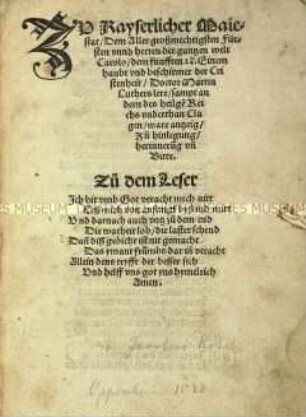 ZU Kayserlicher Maie-
stat / Dem Aller großmechtigsten Für-
sten vnnd herren der gantzen welt
Carolo / dem fünfften ꝛc. Einem
haubt vnd beschirmer der Cri
stenheit / Doctor Martin
Luthers lere / sampt an
dern des heilgē Rei
chs vnderthan Cla
gin / ware anzeig /
Zü hinlegung /
herinnerūg vñ
Bitte.
Zü dem Leser
Ich bit vmb Got veracht mich nit
Liß mich von anfangk biß
Vnd darnach auch
Die warheit lob / die laster schend
Daß diß gedicht ist nit gemacht
Das ymant dar in veracht
Allein den der besser sich
Vnd helff vns got yns hymelrich
Amen.
1520